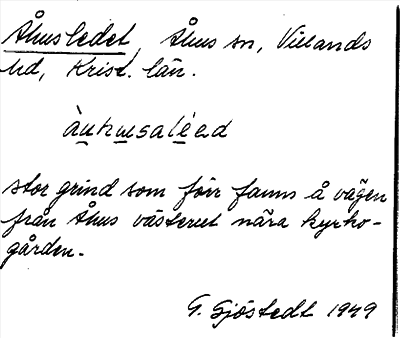 Åhusledet, Åhus sn, Villands
hd, Krist. län.
àuhusaléed
stor grind som förr fanns å vägen
från Åhus västerut nära kyrko-
gården.
G. Sjöstedt 1949